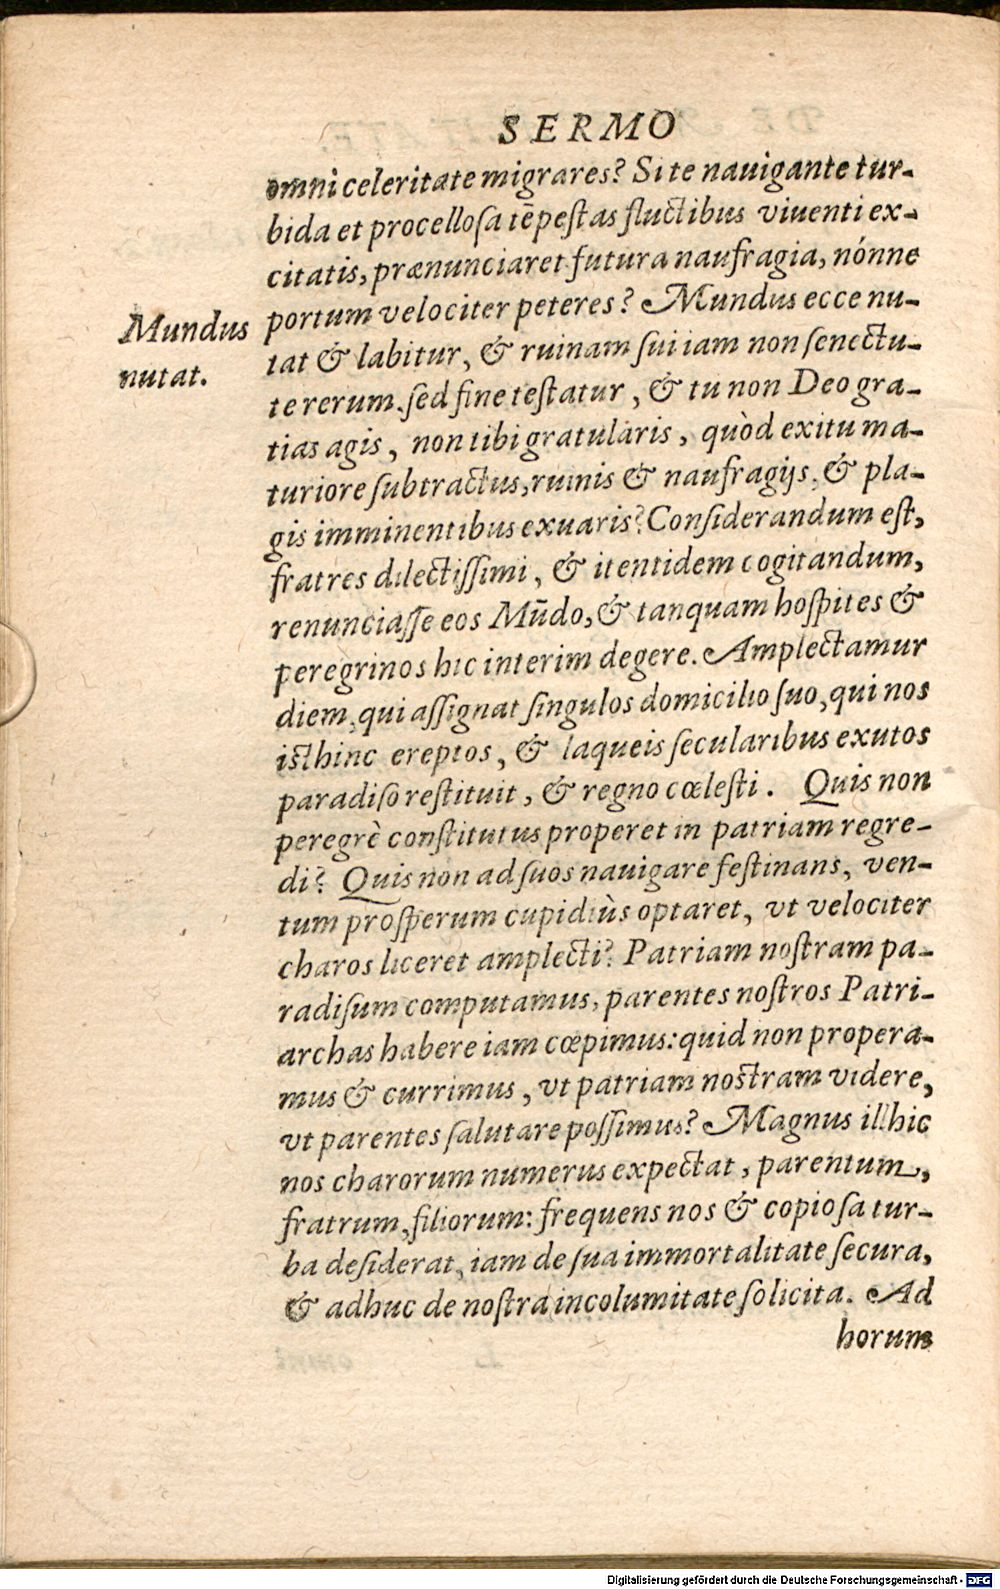 SERMO
omni celeritate migrares? Si te nauigante tur-
bida et procellosa tēpestas fluctibus viuenti ex-
citatis, prænunciaret futura naufragia, nónne
portum velociter peteres? Mundus ecce nu-
Mundus
nutat.
tat & labitur, & ruinam sui iam non senectu-
te rerum. sed fine testatur, & tu non Deo gra-
tias agis, non tibi gratularis, quòd exitu ma-
turiore subtractus, ruinis & naufragijs, & pla-
gis imminentibus exuaris? Considerandum est,
fratres dilectissimi, & itentidem cogitandum,
renunciasse eos Mūdo, & tanquam hospites &
peregrinos hic interim degere. Amplectamur
diem, qui assignat singulos domicilio suo, qui nos
isthinc ereptos, & laqueis secularibus exutos
paradiso restituit, & regno cœlesti. Quis non
peregrè constitutus properet in patriam regre-
di? Quis non ad suos nauigare festinans, ven-
tum prosperum cupidiùs optaret, vt velociter
charos liceret amplecti? Patriam nostram pa-
radisum computamus, parentes nostros Patri-
archas habere iam cœpimus: quid non propera-
mus & currimus, vt patriam nostram videre,
vt parentes salutare possimus? Magnus illhic
nos charorum numerus expectat, parentum,
fratrum, filiorum: frequens nos & copiosa tur-
ba desiderat, iam de sua immortalitate secura,
& adhuc de nostra incolumitate solicita. Ad
horum
Digitalisierung gefördert durch die Deutsche Forschungsgemeinschaft - DFG